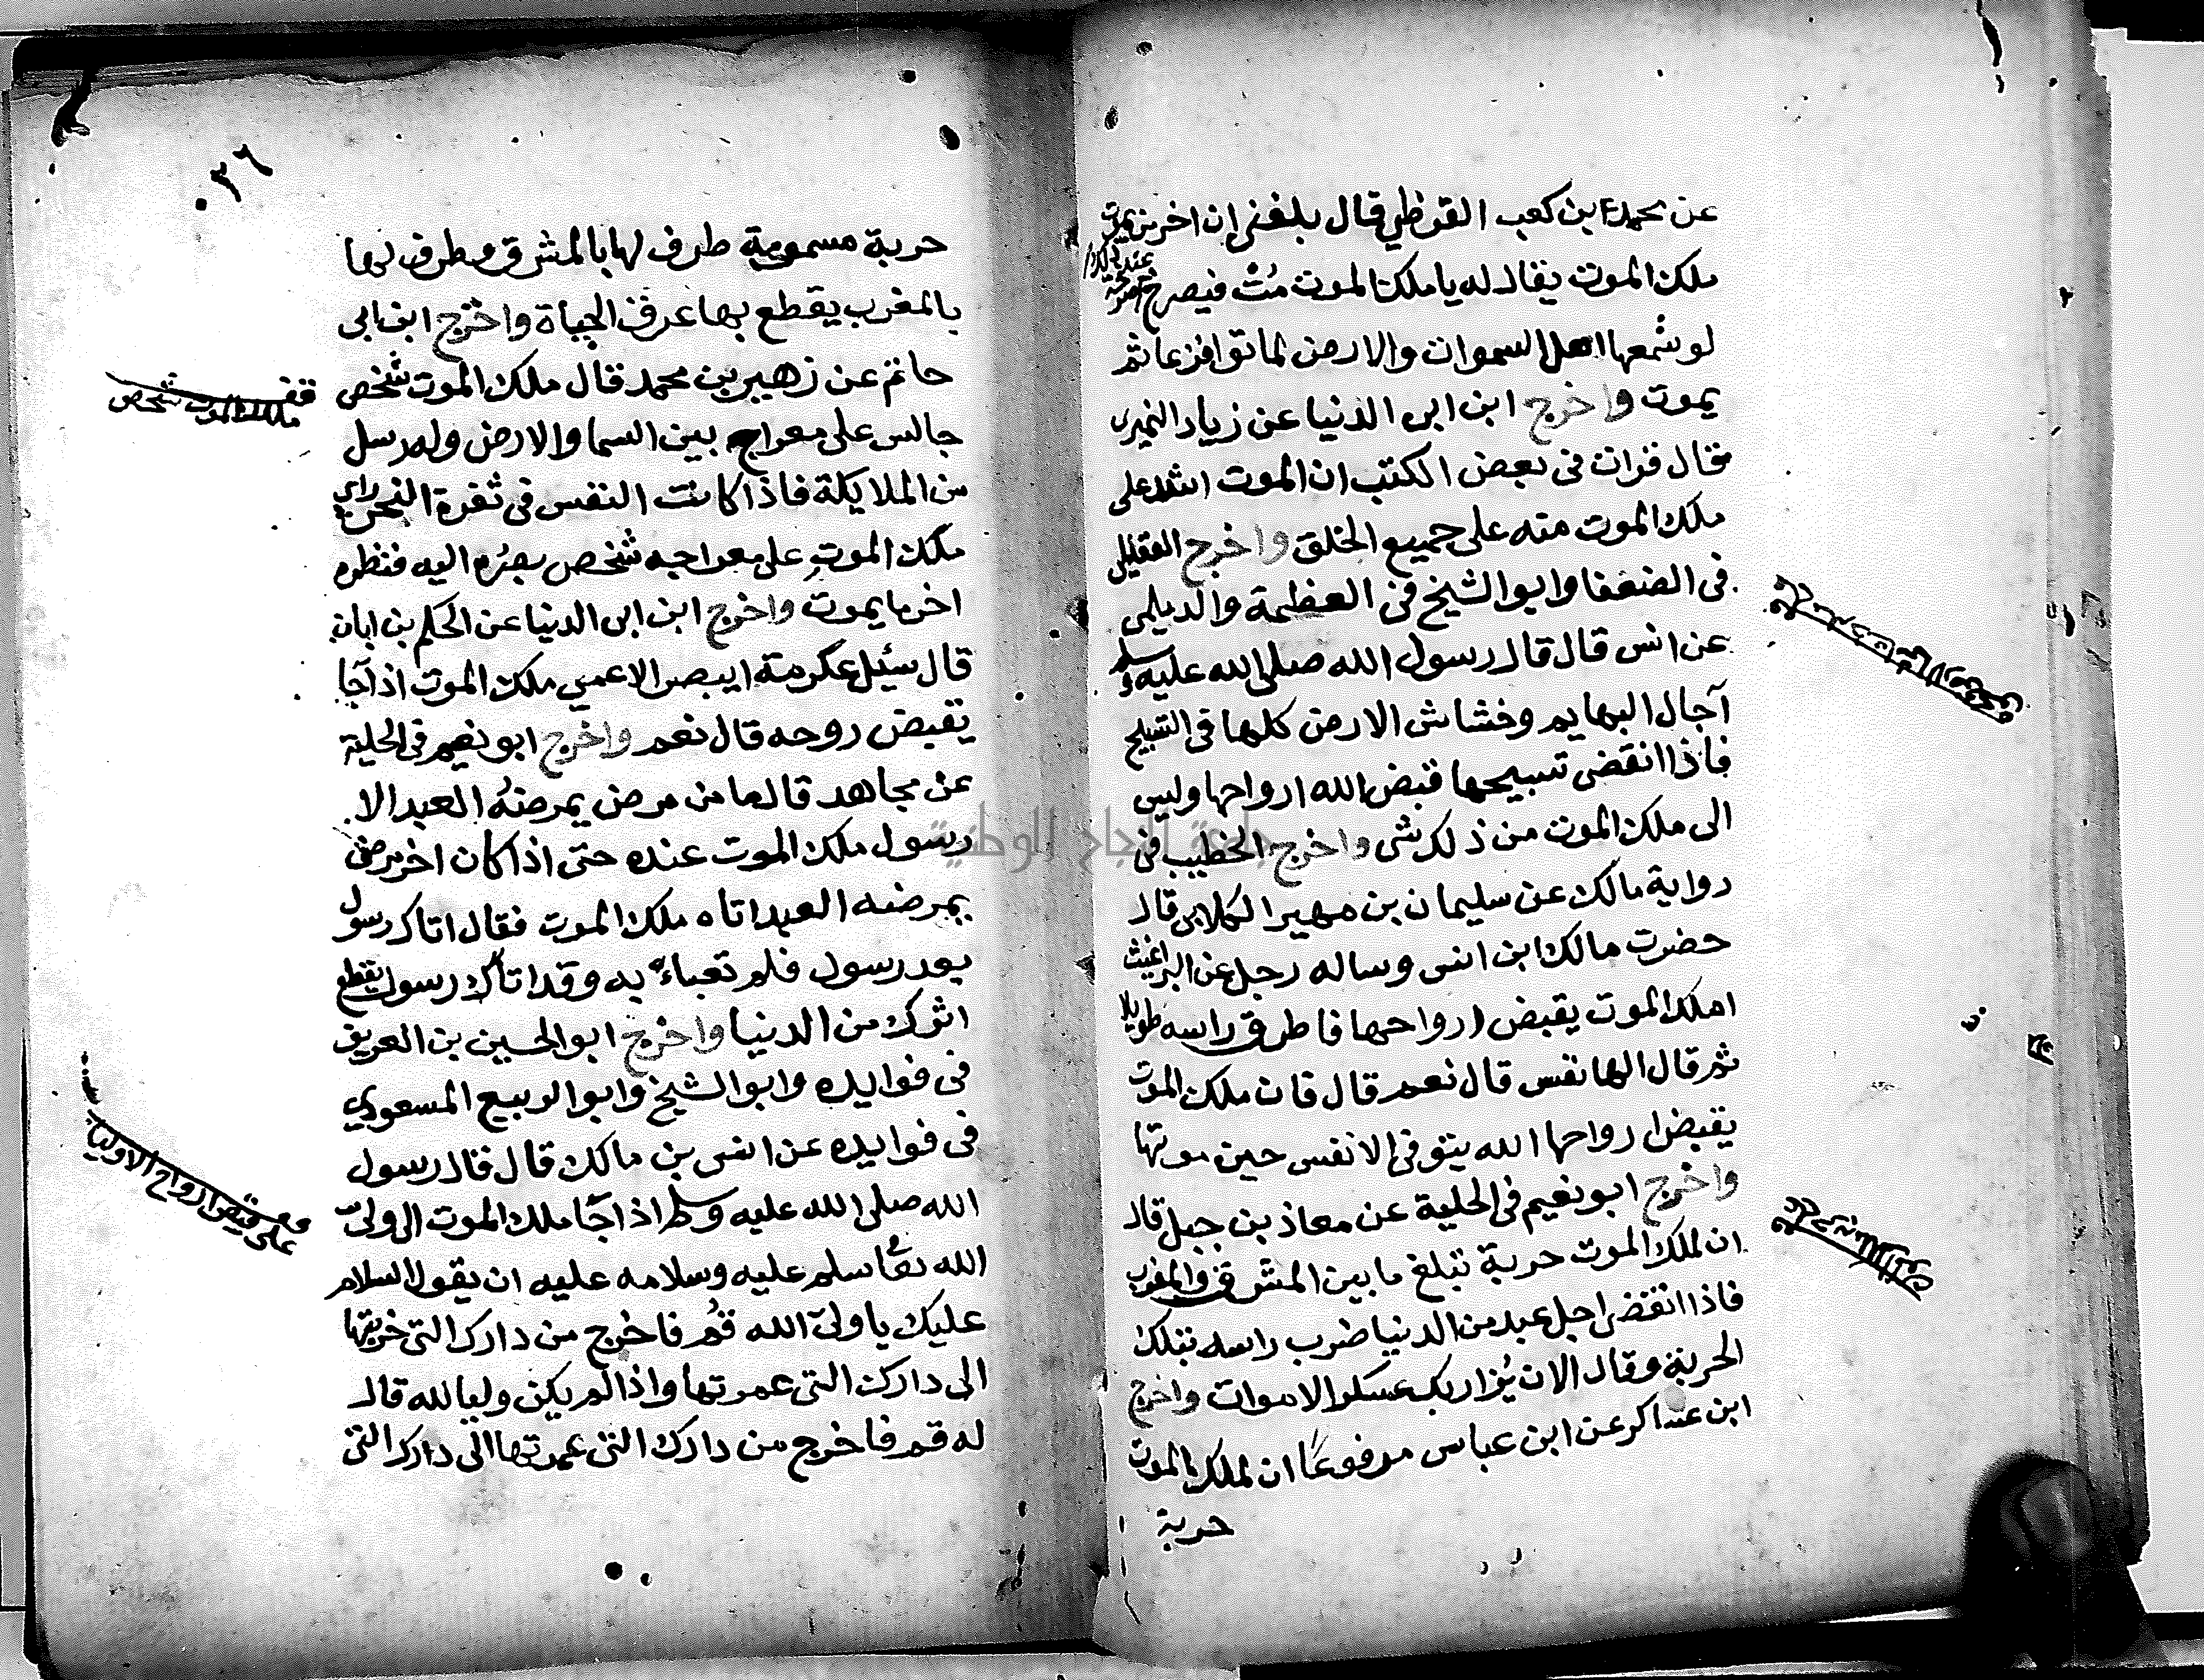 عن محمد ابن كعب القرظي قال بلغني ان اخر من يموت
ملك الموت يقال له يا ملك الموت مُتْ فيصرخ عند ذلك صرخة
لو سمعها اهل السموات والارض لماتوا فزعا ثم
يموت واخرج ابن ابي الدنيا عن زياد النميري
قال قرات في بعض الكتب ان الموت اشد على
ملك الموت منه على جميع الخلق واخرج العقيلي
في الضعفا وابو الشيخ في العظمة والديلمي
عن انس قال قال رسول الله صلى الله عليه وسلم
آجال البهايم وخشاش الارض كلها في التسبيح
فاذا انقضى تسبيحها قبض الله ارواحها وليس
الى ملك الموت من ذلك شي واخرج الخطيب في
رواية مالك عن سليمان بن مهير الكلابي قال
حضرت مالك ابن انس وساله رجل عن البراغيث
املك الموت يقبض ارواحها فاطرق راسه طويلا
ثم قال الها نفس قال نعم قال فان ملك الموت
يقبض ارواحها الله يتوفى الانفس حين موتها
واخرج ابو نعيم في الحلية عن معاذ بن جبل قال
ان لملك الموت حربة تبلغ ما بين المشرق والمغرب
فاذا انقضى اجل عبد من الدنيا ضرب راسه بتلك
الحربة وقال الان يُزار بك عسكر الاموات واخرج
ابن عساكر عن ابن عباس مرفوعًا ان لملك الموت
حربة
٣٦
حربة مسمومة طرف لها بالمشرق وطرف لها
بالمغرب يقطع بها عرق الحياة واخرج ابن ابي
حاتم عن زهير بن محمد قال ملك الموت شخص
جالس على معراج بين السما والارض وله رسل
من الملايكة فاذا كانت النفس في ثغرة النحر راى
ملك الموت على معراجه شخص بصره اليه فنظره
اخر ما يموت واخرج ابن ابي الدنيا عن الحكم بن ابان
قال سئيل عكرمة ايبصر الاعمي ملك الموت اذا جا
يقبض روحه قال نعم واخرج ابو نعيم في الحلية
عن مجاهد قال ما من مرض يمرضهُ العبد الا
رسول ملك الموت عنده حتى اذا كان اخر مرض
يمرضه العبد اتاه ملك الموت فقال اتاك رسول
بعد رسول فلم تعباء به وقد اتاك رسول يقطع
اثرك من الدنيا واخرج ابو الحسين بن العريف
في فوايده وابو الشيخ وابو الربيع المسعودي
في فوايده عن انس بن مالك قال قال رسول
الله صلى الله عليه وسلم اذا جا ملك الموت الى ولي
الله تعا سلم عليه وسلامه عليه ان يقول السلام
عليك يا ولي الله قُم فاخرج من دارك التي خربتها
الى دارك التي عمرتها واذا لم يكن وليا لله قال
له قم فاخرج من دارك التي عمرتها الى دارك التي
قف
ملك الموت شخص
على قبض ارواح الاوليا
جامعة النجاح الوطنية